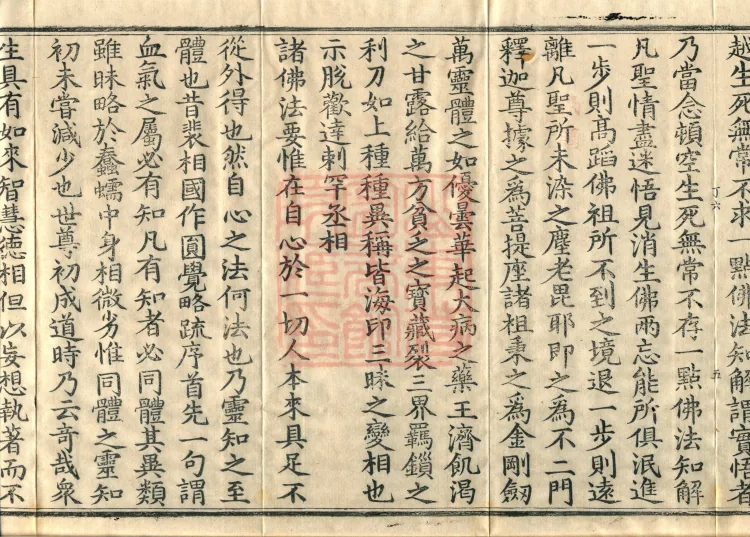 越生死無常不求一點佛法知解謂實悟者
乃當念頓空生死無常不存一點佛法知解
凡聖情盡迷悟見消生佛兩忘能所俱泯進
一步則髙蹈佛祖所不到之境退一步則遠
離凡聖所未染之塵老毘耶即之為不二門
釋迦尊據之為菩提座諸祖秉之為金剛劔
萬靈體之如優曇華起大病之藥王濟飢渴
之甘露給萬方貧乏之寳藏裂三界羈鎖之
利刀如上種種異稱皆海印三昧之變相也
示脫歡達剌罕丞相
諸佛法要惟在自心於一切人本來具足不
從外得也然自心之法何法也乃靈知之至
體也昔裴相國作圓覺略疏序首先一句謂
血氣之屬必有知凡有知者必同體其異類
雖昧略於蠢蠕中身相微劣惟同體之靈知
初未嘗減少也世尊初成道時乃云奇哉衆
生具有如來智慧德相但以妄想執著而不
丁六
五